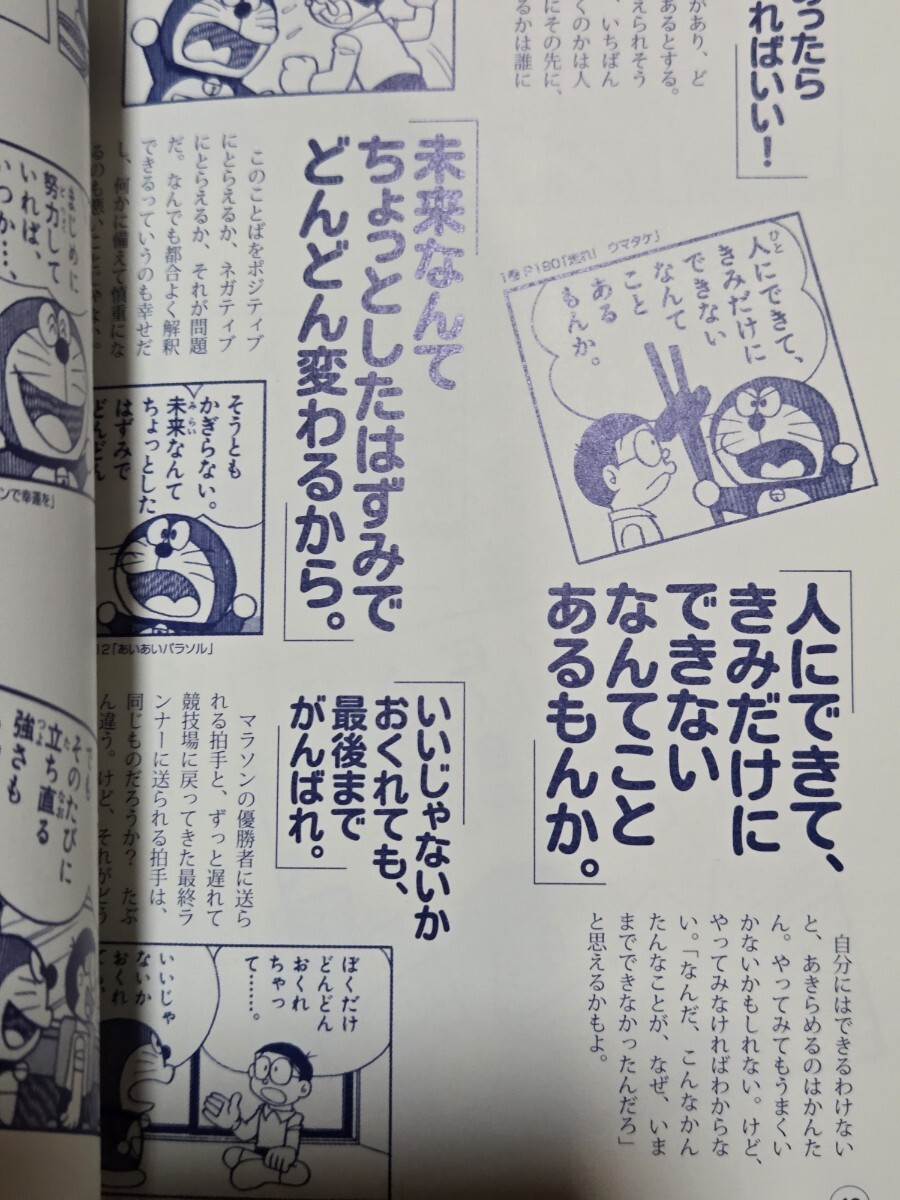 あったら
ればいい！」
があり、ど
あるとする。
えられそう
、いちばん
くのかは人
にその先に、
るかは誰に
1巻P190「走れ！ウマタケ」
人にできて、
きみだけに
できない
なんて
こと
ある
もんか。
「人にできて、
きみだけに
できない
なんてこと
あるもんか。」
自分にはできるわけない
と、あきらめるのはかんた
ん。やってみてもうまくい
かないかもしれない。けど、
やってみなければわからな
い。「なんだ、こんなかん
たんなことが、なぜ、いま
までできなかったんだろ」
と思えるかもよ。
「未来なんて
ちょっとしたはずみで
どんどん変わるから。」
このことばをポジティブ
にとらえるか、ネガティブ
にとらえるか、それが問題
だ。なんでも都合よく解釈
できるっていうのも幸せだ
し、何かに備えて慎重にな
るのも悪いことじゃない。
そうとも
かぎらない。
未来なんて
ちょっとした
はずみで
どんどん
12「あいあいパラソル」
「いいじゃないか
おくれても、
最後まで
がんばれ。」
マラソンの優勝者に送ら
れる拍手と、ずっと遅れて
競技場に戻ってきた最終ラ
ンナーに送られる拍手は、
同じものだろうか？　たぶ
ん違う。けど、それがどう
ぼくだけ
どんどん
おくれ
ちゃっ
て……。
いいじゃ
ないか
おくれ
まじめに
努力して
いれば、
いつか…、
ンで幸運を」
でも
そのたびに
立ち直る
強さも